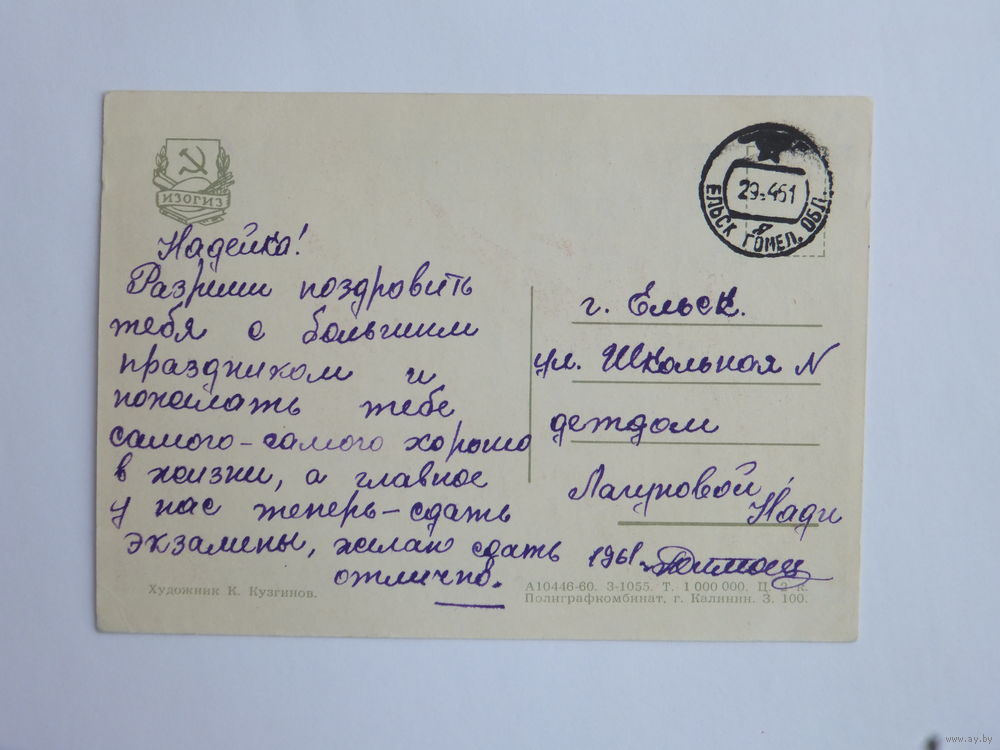 ИЗОГИЗ
29-461
ЕЛЬСК ГОМЕЛ. ОБЛ.
Я
Надейка!
Разриши поздровить
тебя с большим
праздником и
пожелать тебе
самого-самого хорошо
в жизни, а главное
у нас теперь-сдать
экзамены, желаю сдать
отлично.
г. Ельск.
ул. Школьная N
детдом
Лагуновой,
Нади
1961
Художник К. Кузгинов.
А10446-60. З-1055. Т. 1 000 000. Ц. 2 к.
Полиграфкомбинат, г. Калинин. З. 100.
www.ay.by